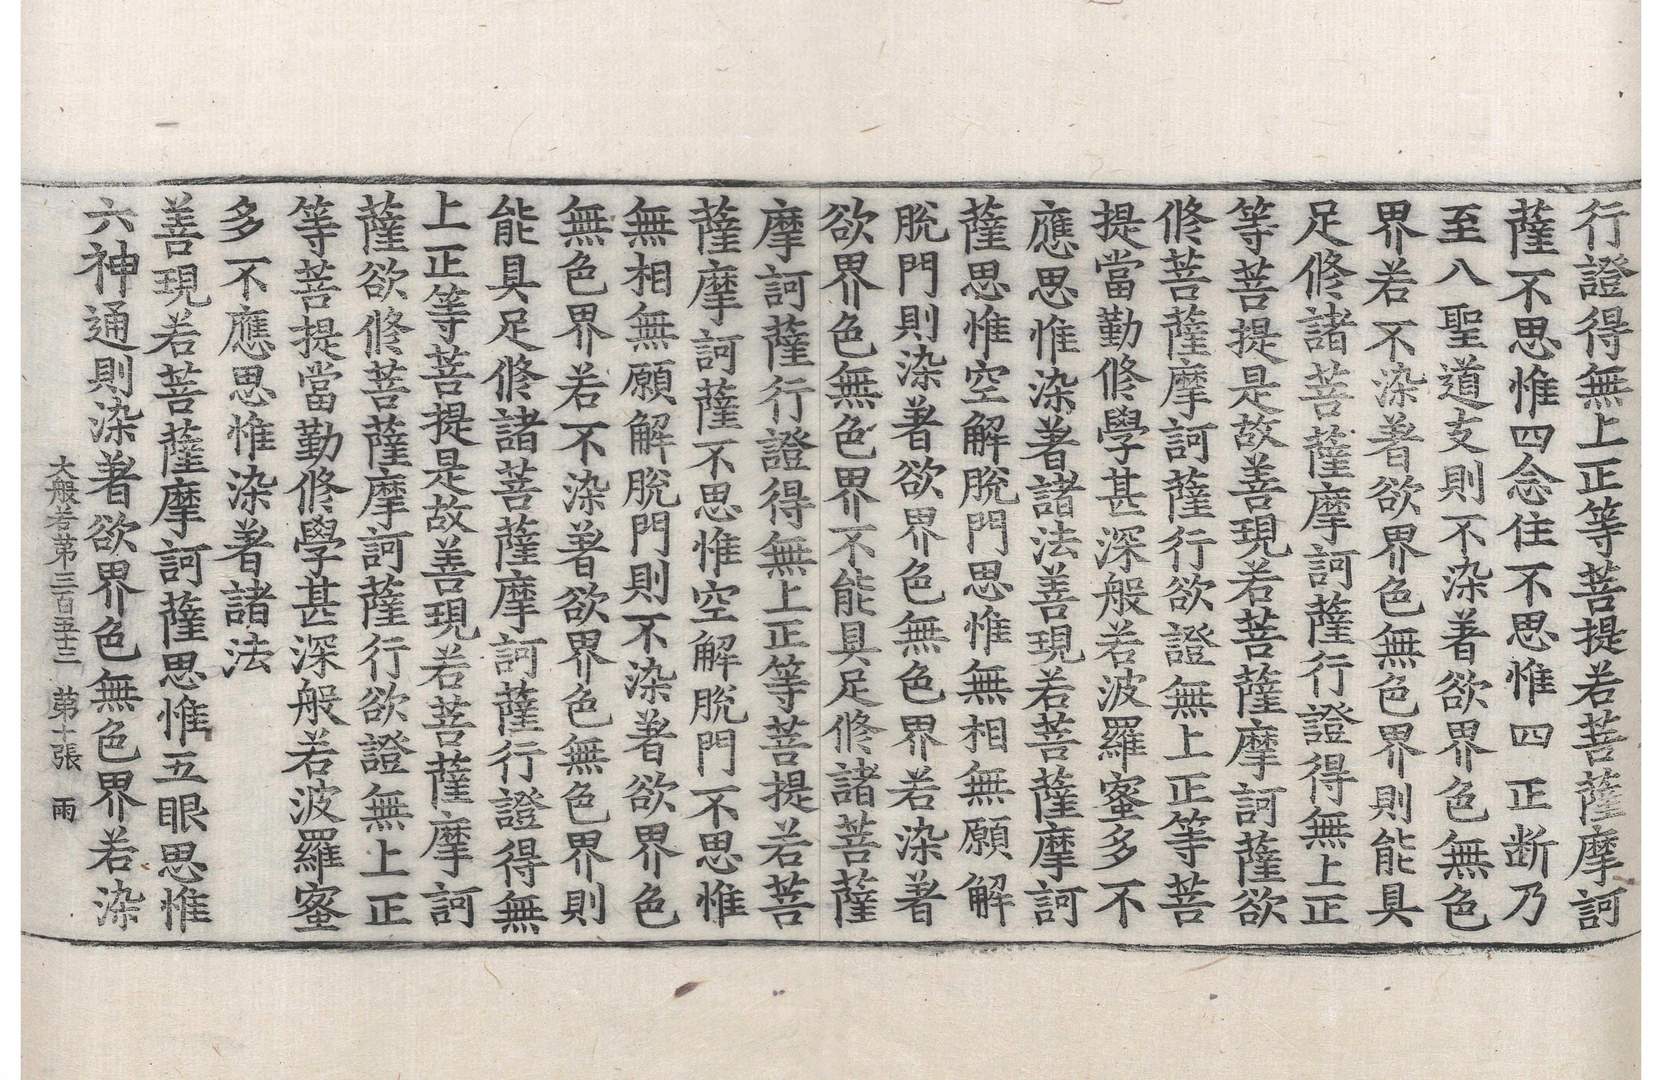 行證得無上正等菩提若菩薩摩訶
薩不思惟四念住不思惟四正断乃
至八聖道支則不染著欲界色無色
界若不染著欲界色無色界則能具
足修諸菩薩摩訶薩行證得無上正
等菩提是故善現若菩薩摩訶薩欲
修菩薩摩訶薩行欲證無上正等菩
提當勤修學甚深般若波羅蜜多不
應思惟染著諸法善現若菩薩摩訶
薩思惟空解脫門思惟無相無願解
脫門則染著欲界色無色界若染著
欲界色無色界不能具足修諸菩薩
摩訶薩行證得無上正等菩提若菩
薩摩訶薩不思惟空解脫門不思惟
無相無願解脫門則不染著欲界色
無色界若不染著欲界色無色界則
能具足修諸菩薩摩訶薩行證得無
上正等菩提是故善現若菩薩摩訶
薩欲修菩薩摩訶薩行欲證無上正
等菩提當勤修學甚深般若波羅蜜
多不應思惟染著諸法
善現若菩薩摩訶薩思惟五眼思惟
六神通則染著欲界色無色界若染
大般若第三百五十三 第十張 雨